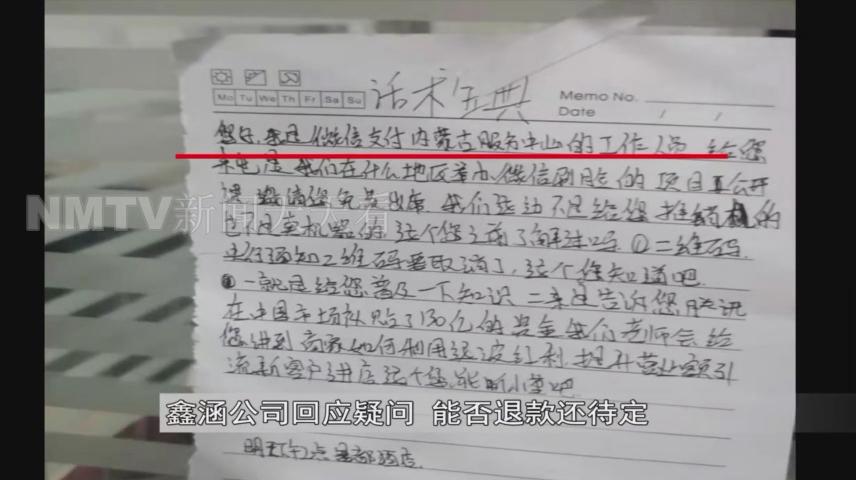 话术宝典
Memo No.
Mo Tu We Th Fr Sa Su
Date / /
您好,我是微信支付内蒙古服务中心的工作人员 给您
来电是我们在什么地区举办微信刷脸的项目公开
课 邀请您免费出席 我们这边不是给您推销机的
也不是卖机器的,这个您之前了解过吗 ① 二维码
央行须知二维码要取消了,这个您知道吧
一就是给您普及一下知识 二来是告诉您腾讯
在中国市场补贴了130亿的奖金 我们老师会给
您讲到商家如何利用这波红利,提升营业额引
流新客户进店 这个您能听小董吧
明天 点 酒店
NMTV新闻天天看
鑫涵公司回应疑问 能否退款还待定